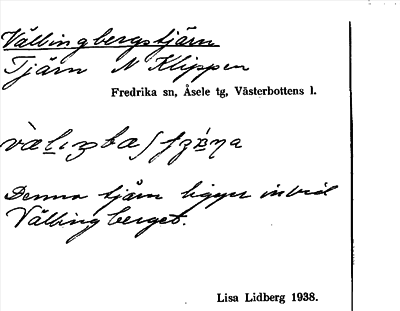 Vällingbergstjärn
Tjärn N Klippen
Fredrika sn, Åsele tg, Västerbottens l.
Denna tjärn ligger invid
Vällingberget.
Lisa Lidberg 1938.